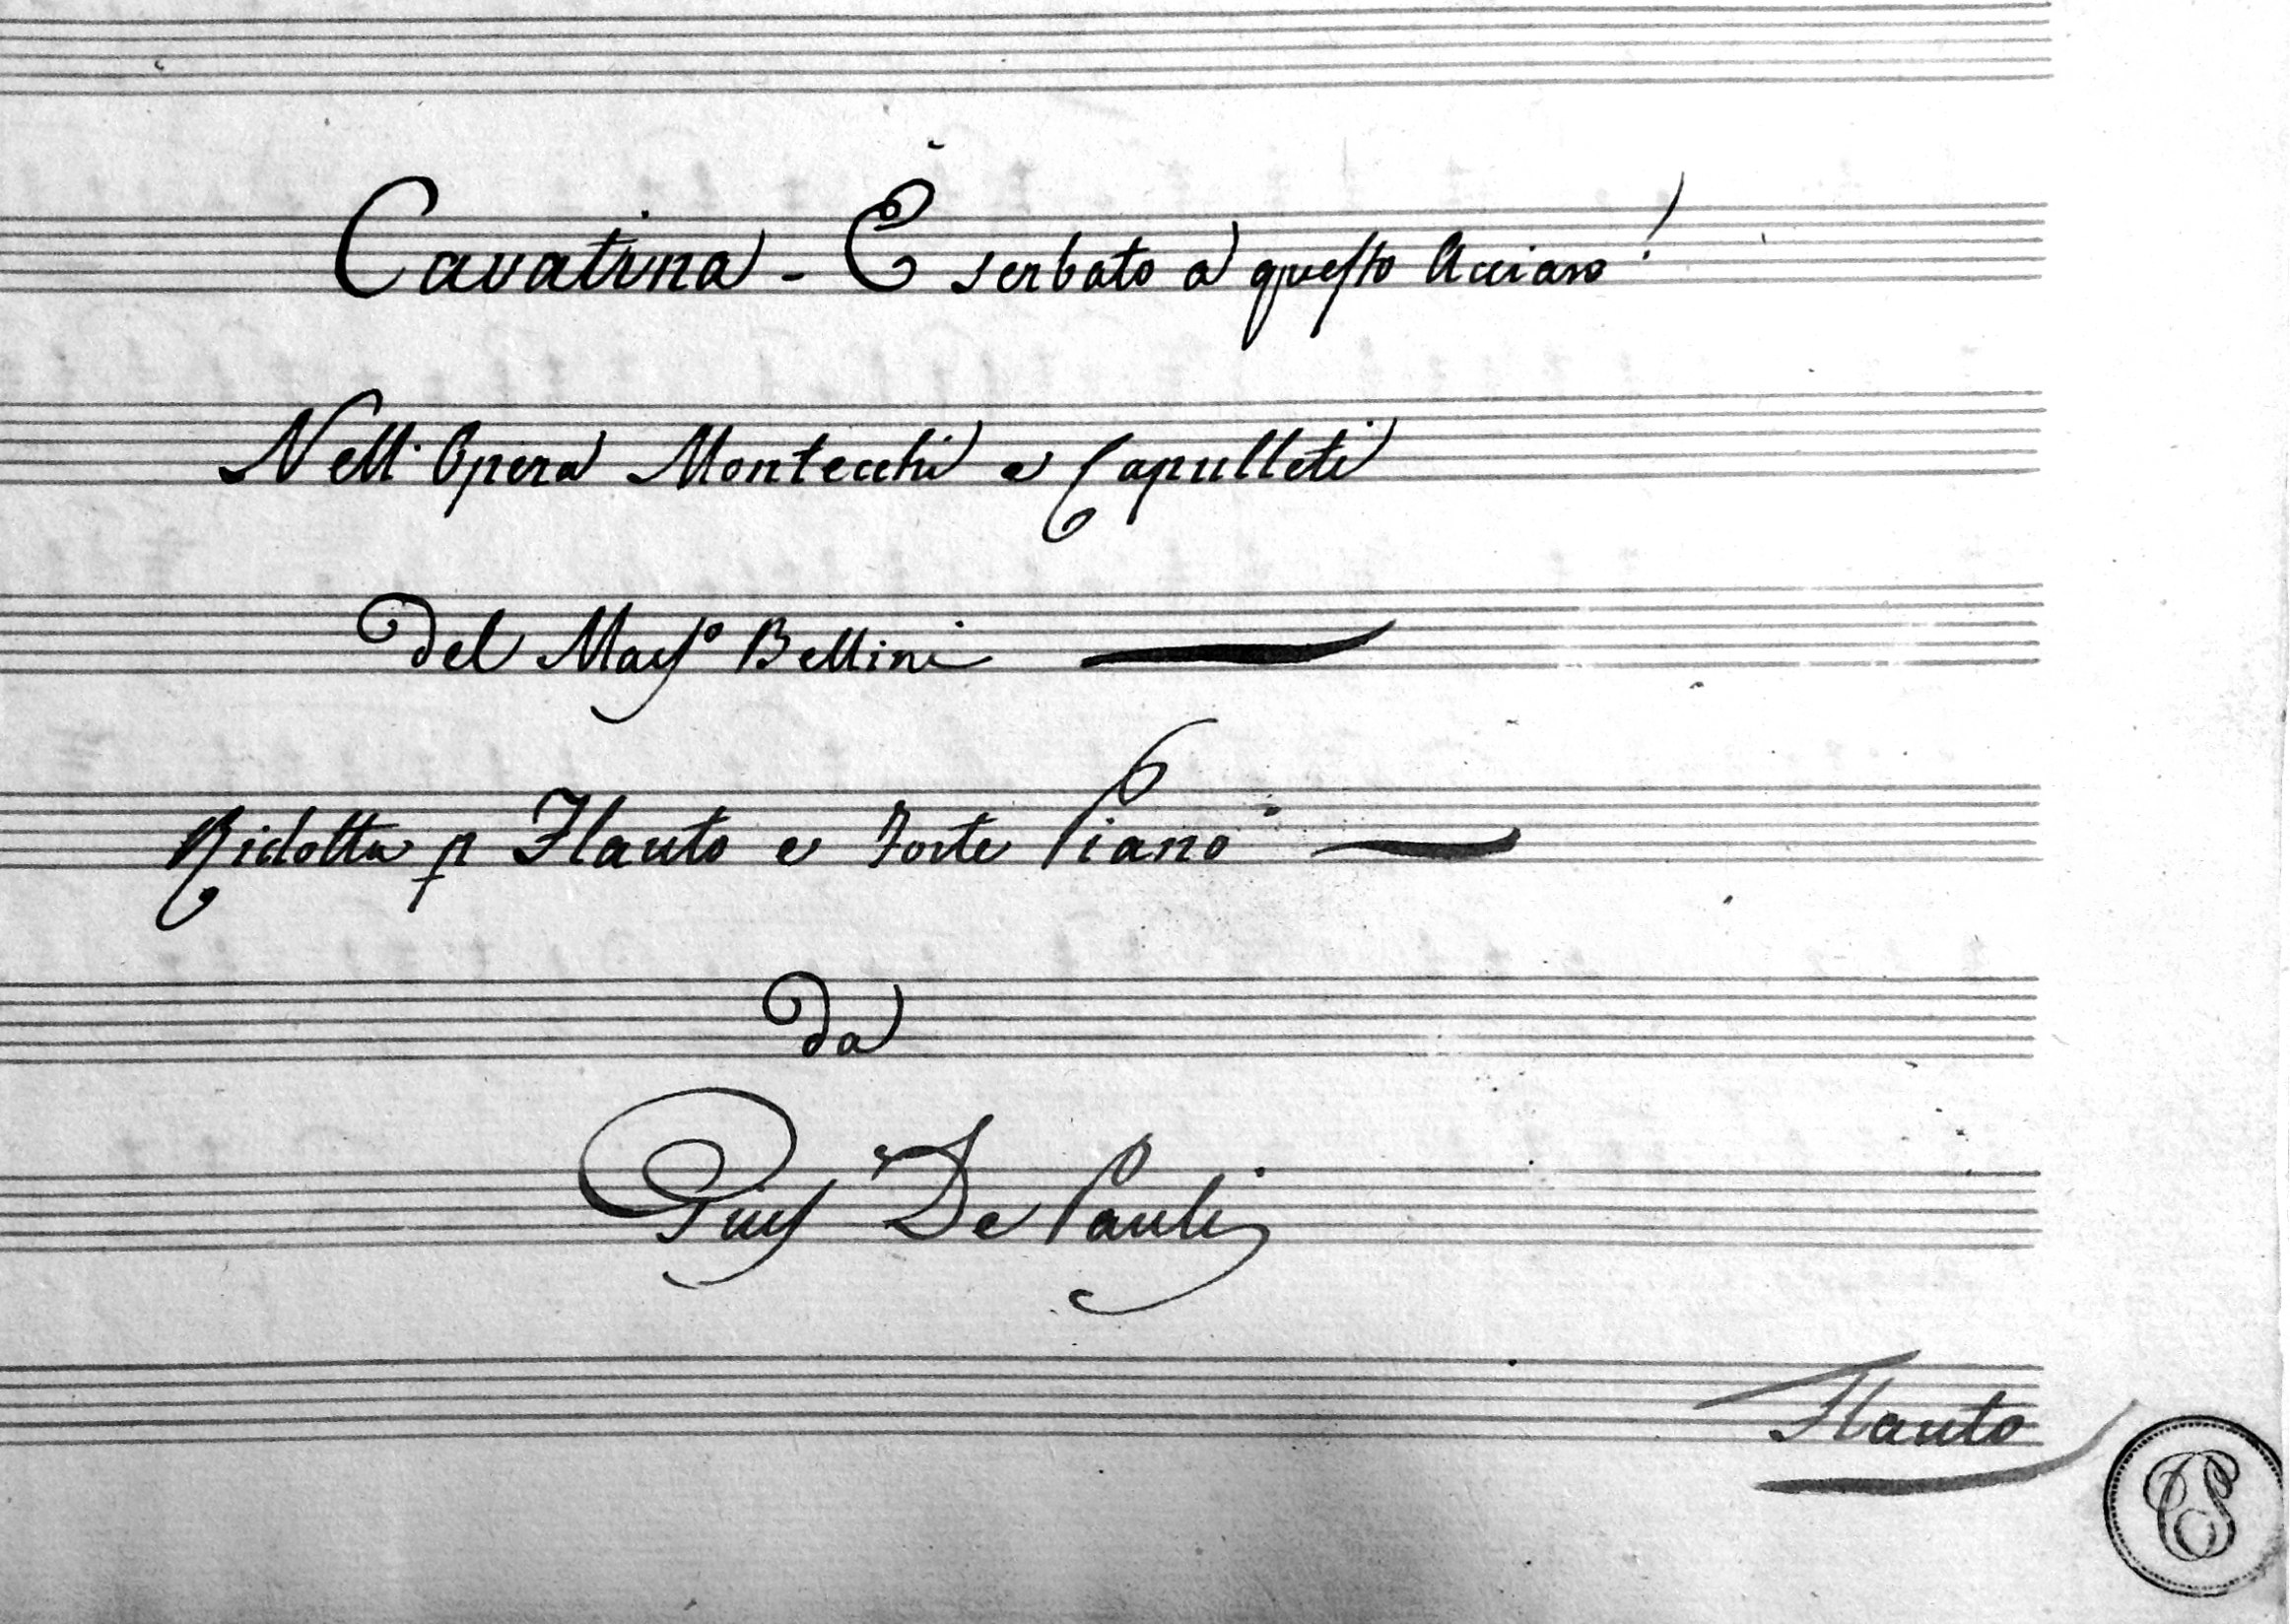 Cavatina - È serbato a questo Acciaro!
Nell'Opera Montecchi e Capulleti
del Maesº Bellini
Ridotta p Flauto e Forte Piano
Da
Gius De Pauli
Flauto
CS